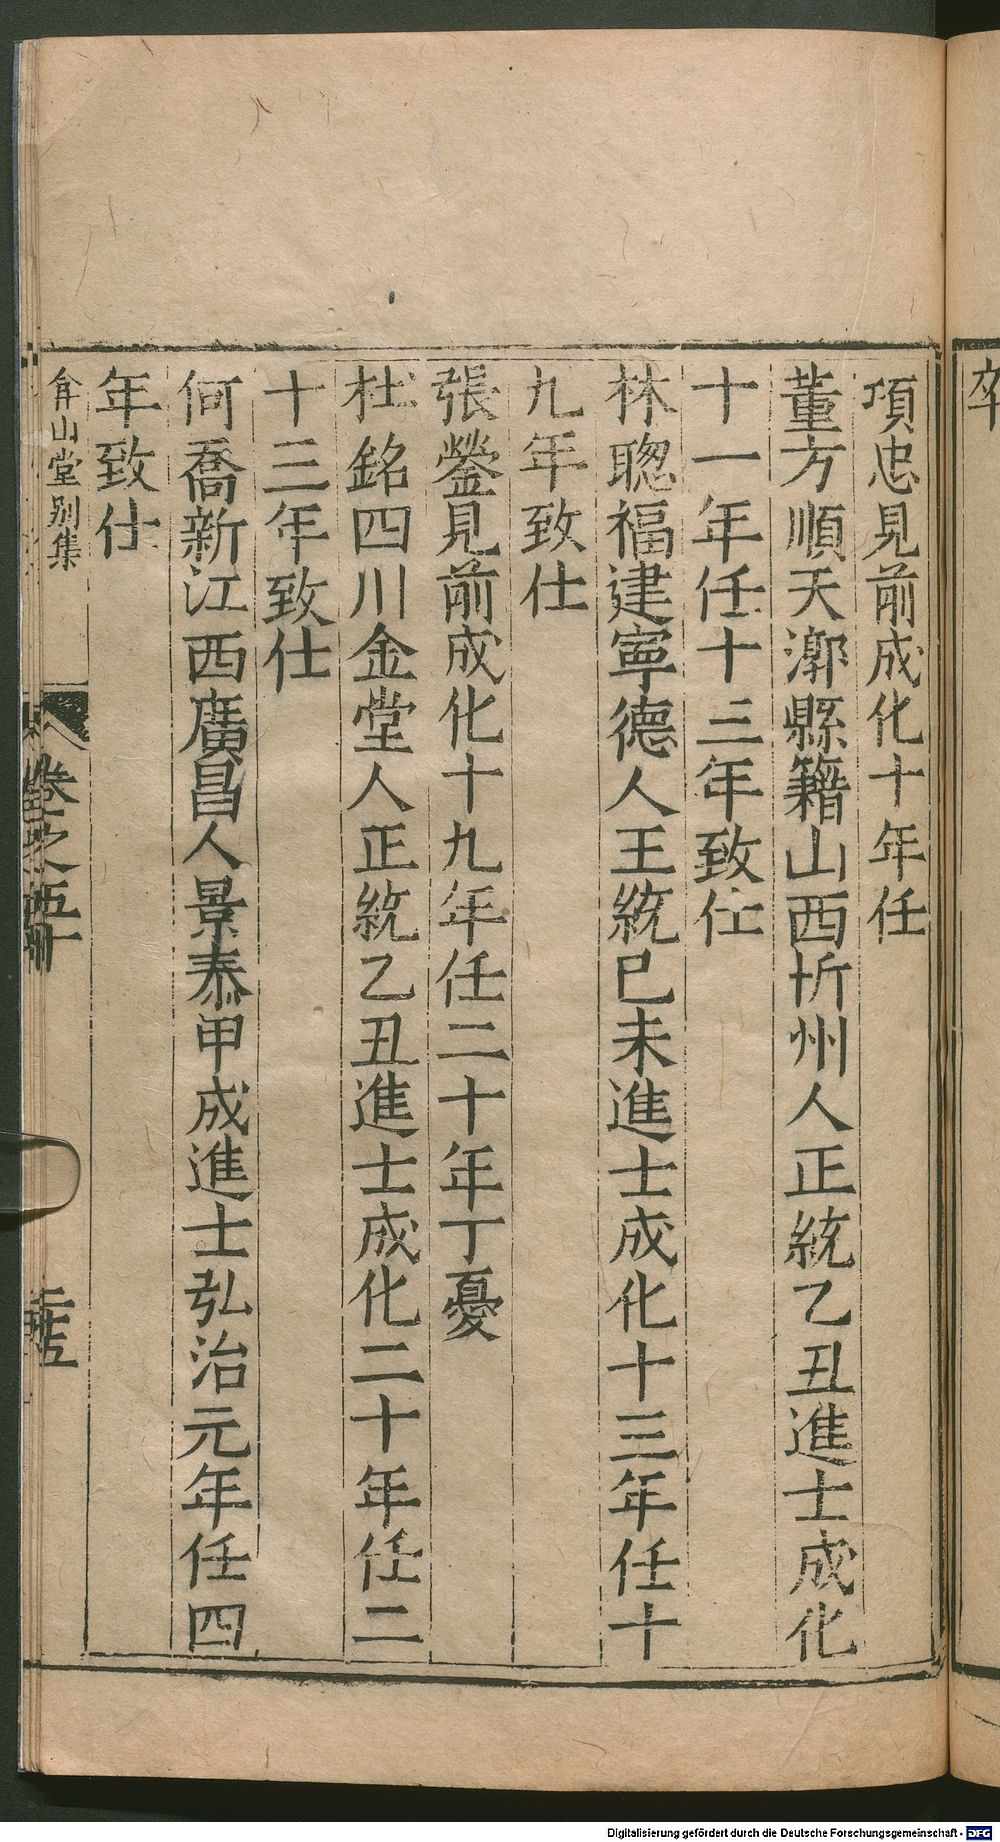 卒
項忠見前成化十年任
董方順天漷縣籍山西忻州人正統乙丑進士成化
十一年任十三年致仕
林聦福建寧德人王統巳未進士成化十三年任十
九年致仕
張鎣見前成化十九年任二十年丁憂
杜銘四川金堂人正統乙丑進士成化二十年任二
十三年致仕
何喬新江西廣昌人景泰甲成進士弘治元年任四
年致仕
弇山堂别集
卷之五十
Digitalisierung gefördert durch die Deutsche Forschungsgemeinschaft - DFG